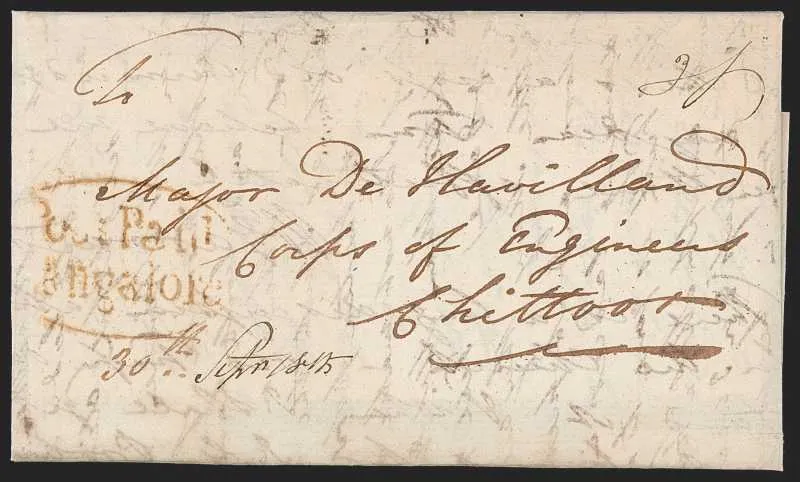 To
Major De Havilland
Corps of Engineers
Chittoor
Post Paid
angalore
30th